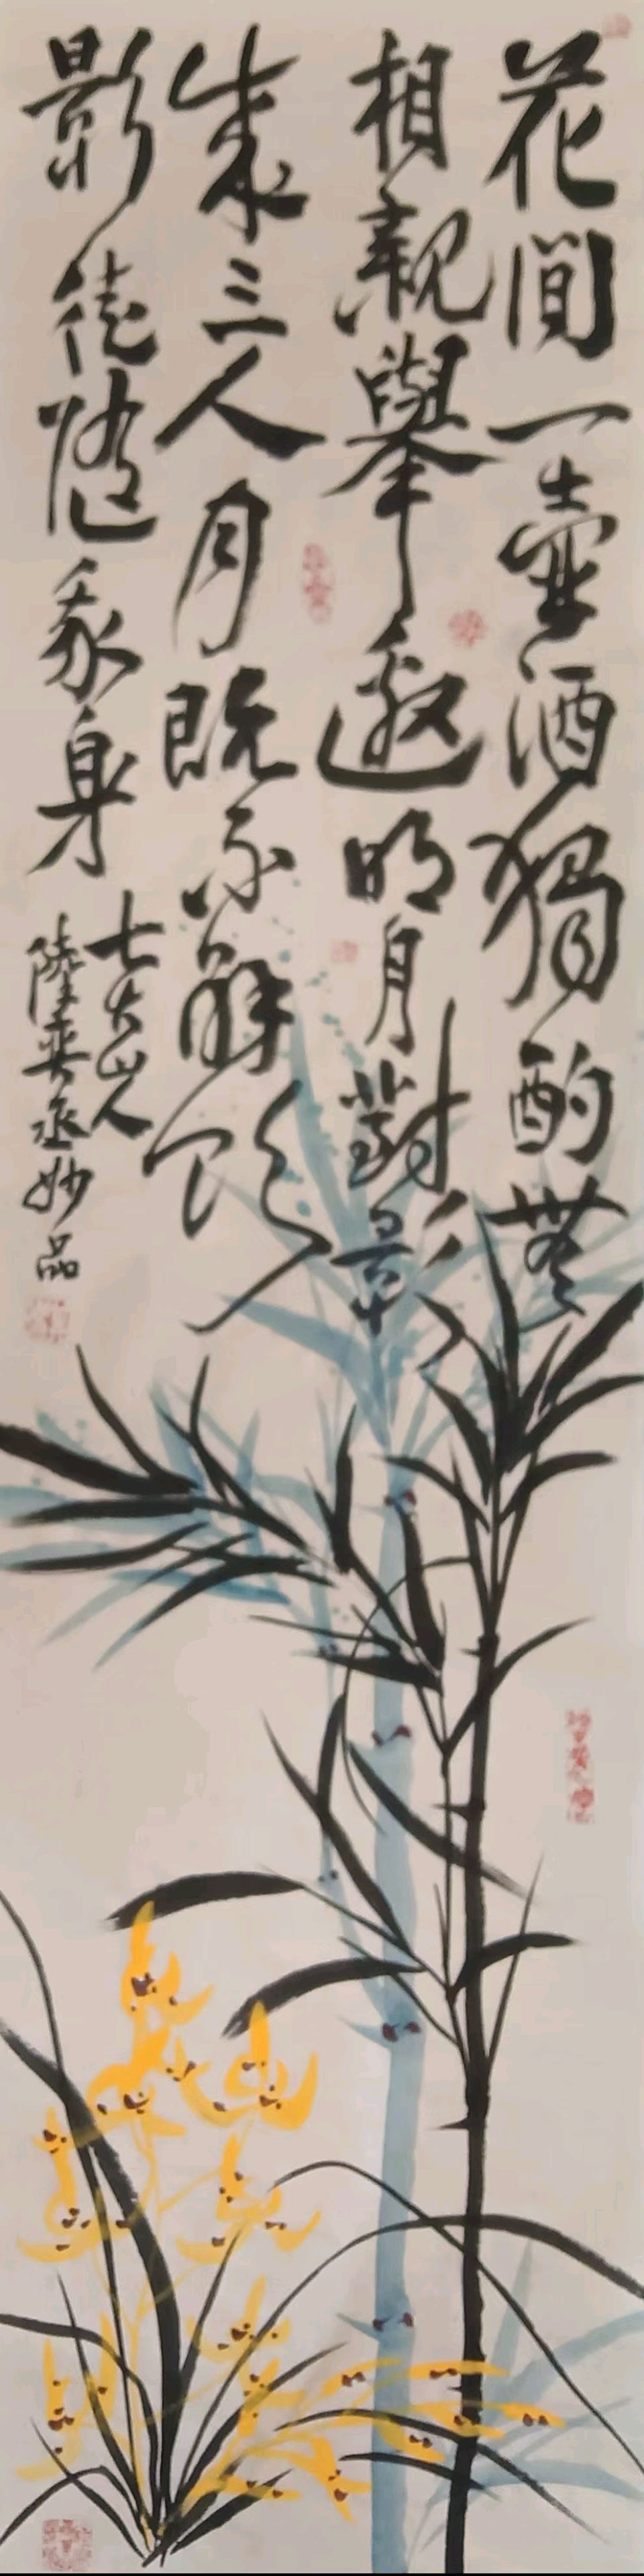 花間一壺酒獨酌無
相親舉邀明月對影
成三人月既不解飲
影徒隨我身
七十山人
陸奕丞妙品